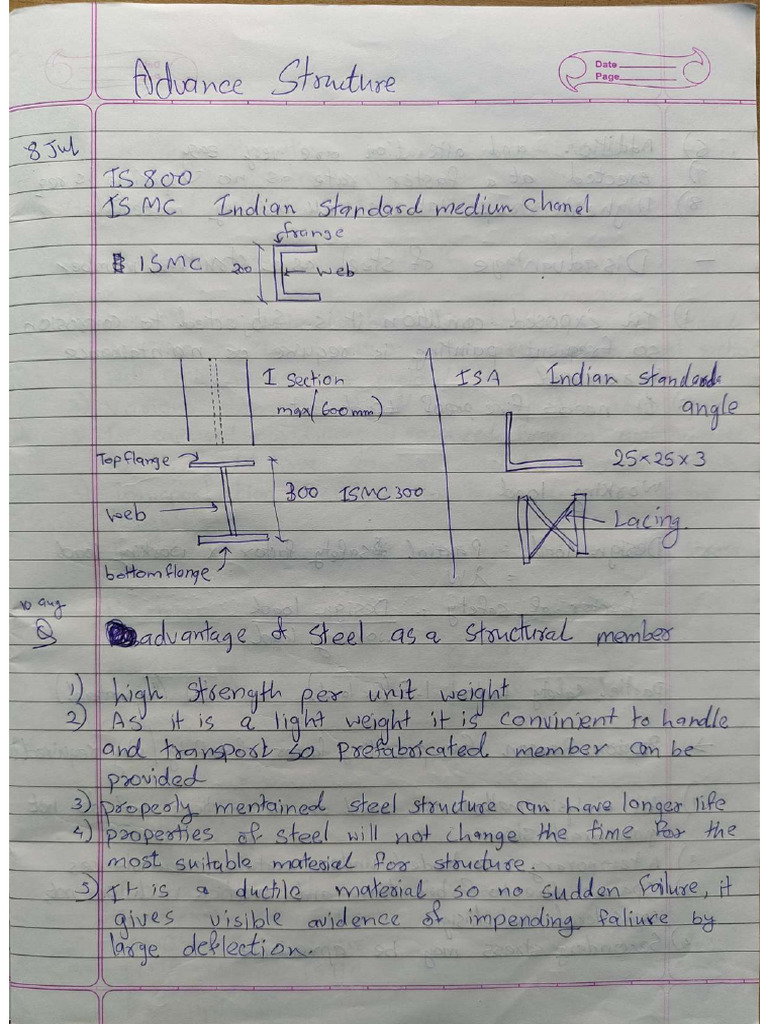 Advance Structure
Date
Page
8 Jul
IS 800
ISMC Indian Standard mediun Chanel
frange
ISMC 200
web
I section
max (600mm)
ISA Indian standard
angle
25×25×3
Top flange
web
300 ISMC 300
bottom flange
Lacing.
10 aug
Q advantage of steel as a structural member
1) high strength per unit weight
2) As it is a light weight it is convinient to handle
and transport so prefabricated member can be
provided
3) properly mentained steel structure can have longer life
4) properties of steel will not change the time for the
most suitable material for structure.
5) It is a ductile material so no sudden failure, it
gives visible avidence of impending faliure by
large deflection.